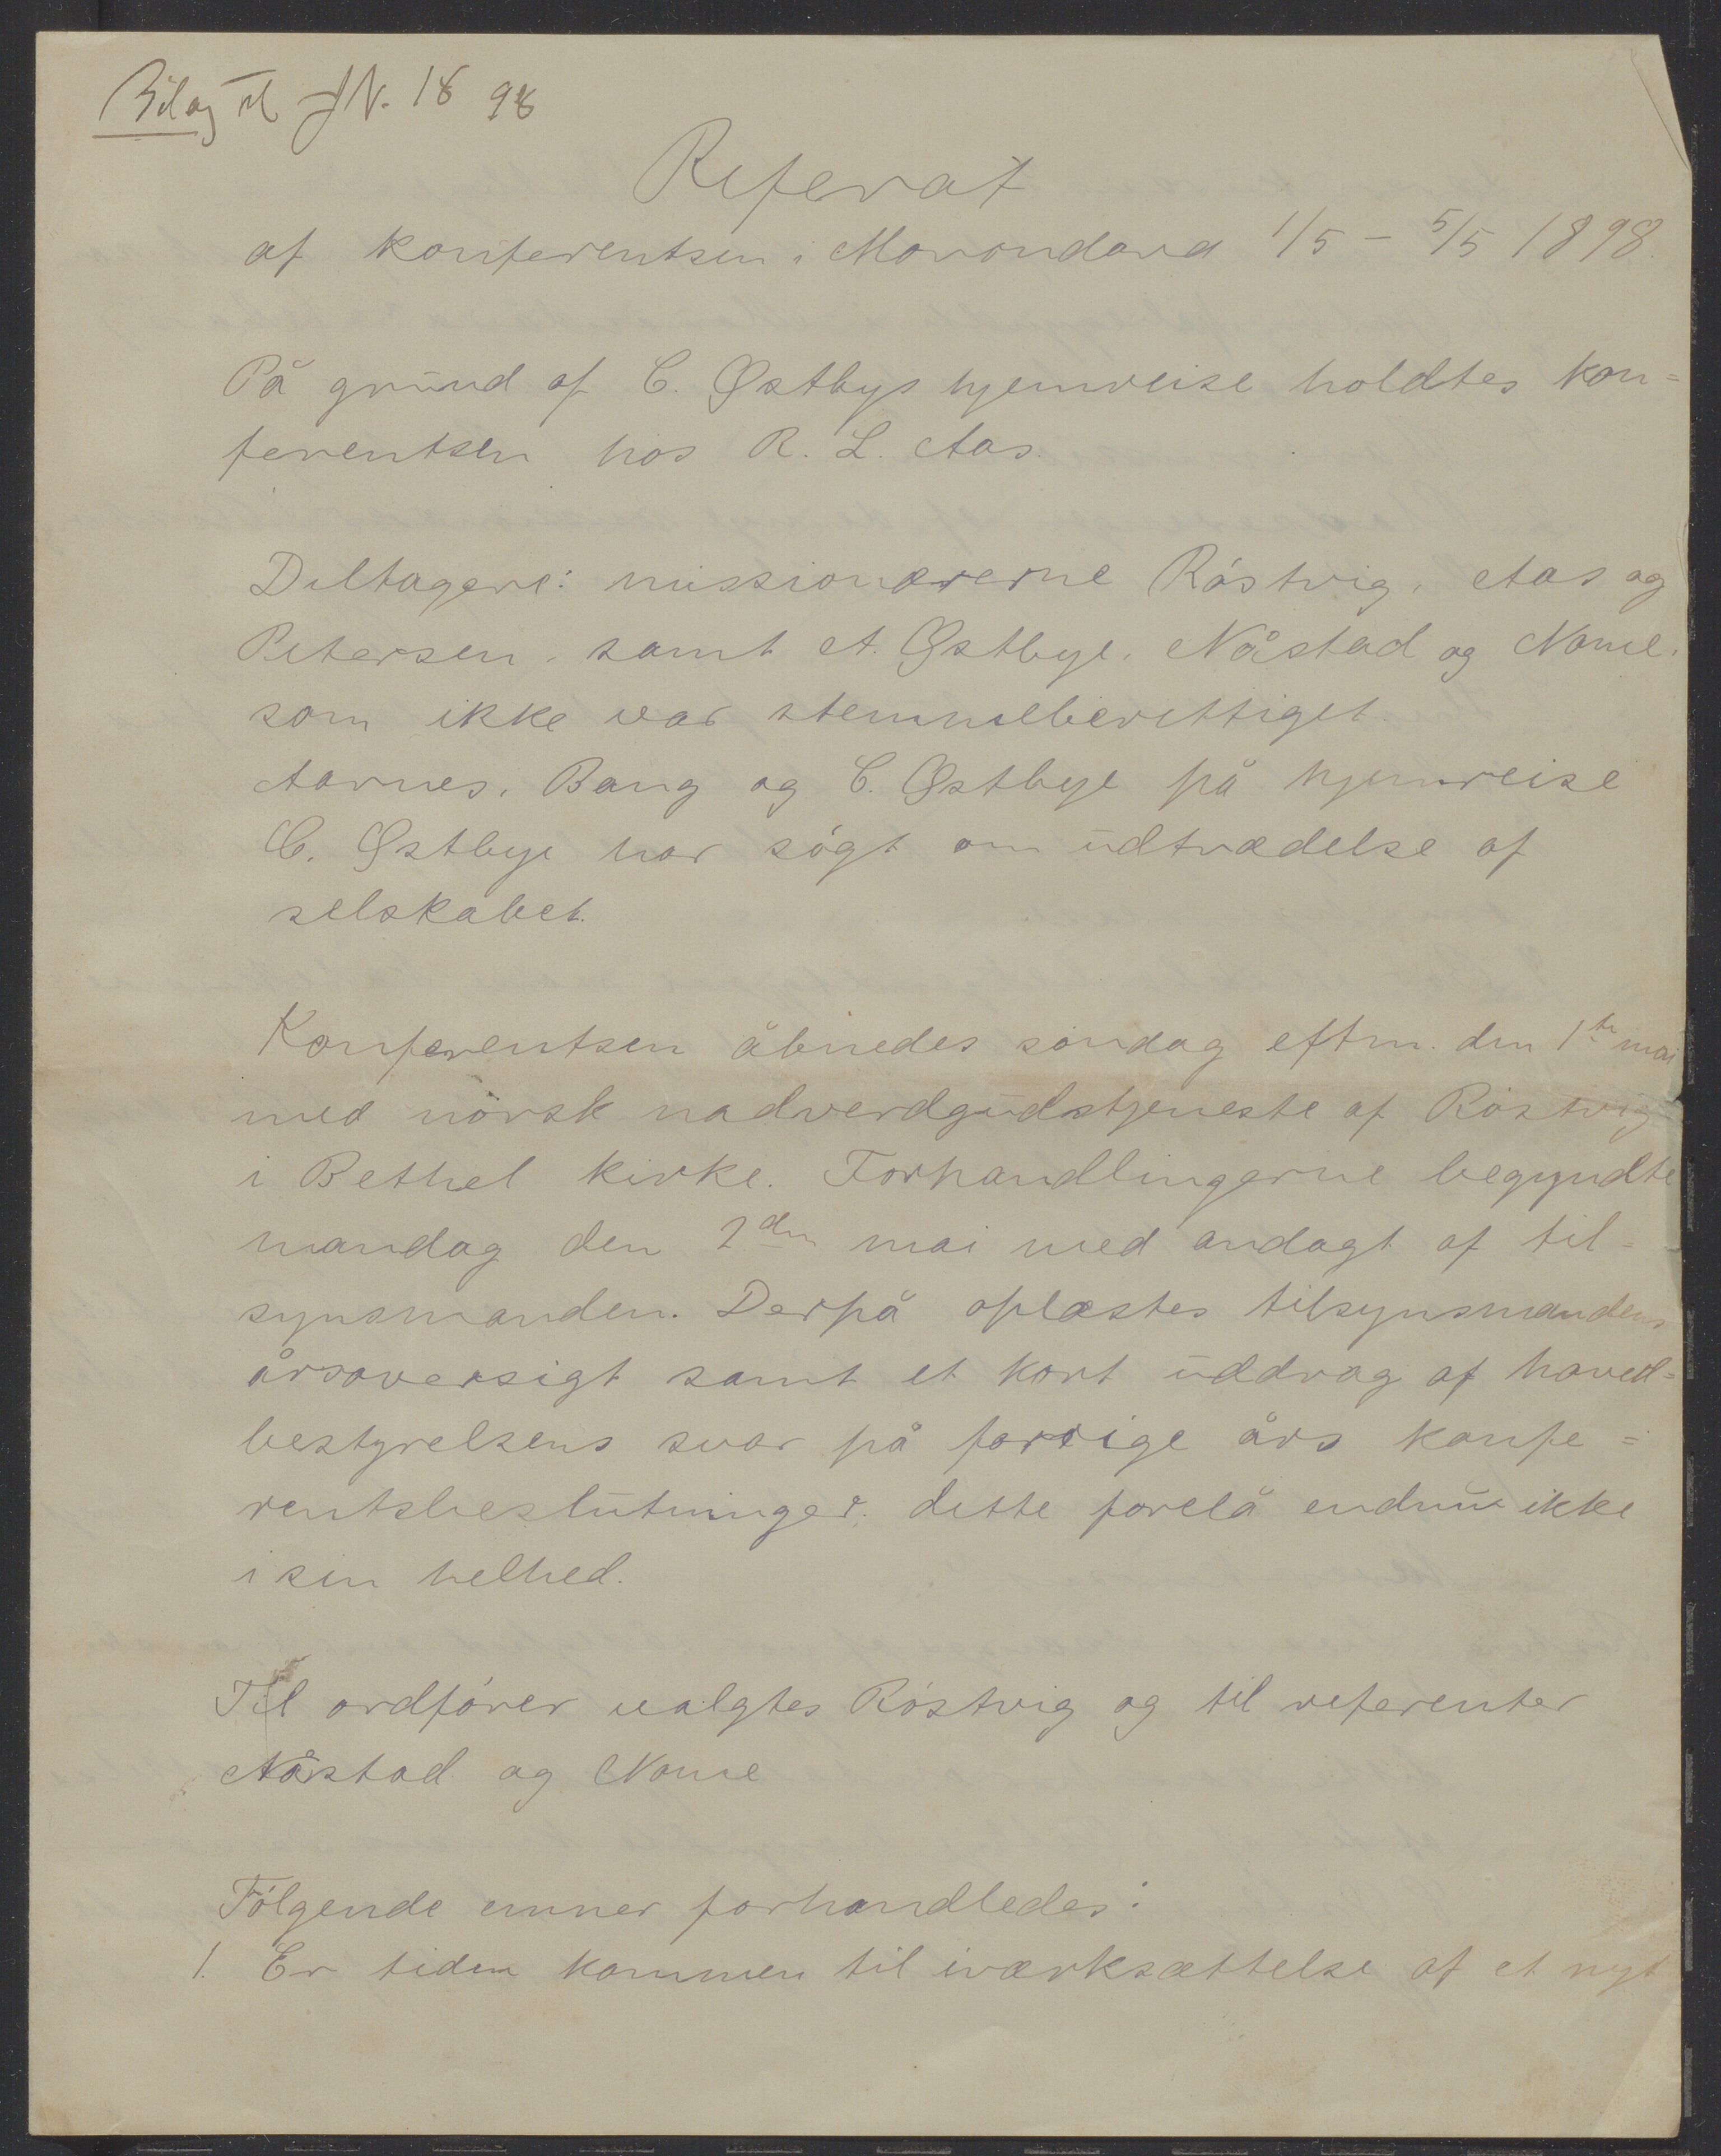 Bilag til J.N. 18 98
Referat
af konferentsen i Morondava 1/5 – 5/5 1898.
På grund af C. Østbys hjemreise holdtes kon=
ferentsen hos R. L. Aas.
Deltagere: missionærerne Röstvig, Aas og
Petersen, samt A. Østbye, Nåstad og Nome,
som ikke var stemmeberettiget.
Aarnes, Bang og C. Østbye på hjemreise
C. Østbye har sögt om udtrædelse af
selskabet.
Konferentsen åbnedes söndag eftm. den 1te mai
med norsk nadverdgudstjeneste af Röstvig
i Bethel kirke. Forhandlingerne begyndte
mandag den 2den mai med andagt af til-
synsmanden. Derpå oplæstes tilsynsmandens
årsoversigt samt et kort uddrag af hoved=
bestyrelsens svar på forrige års konfe=
rentsbeslutninger. dette forelå endnu ikke
i sin helhed.
Til ordförer valgtes Röstvig og til referenter
Nåstad og Nome
Fölgende emner forhandledes:
1. Er tiden kommen til iværksættelse af et nyt